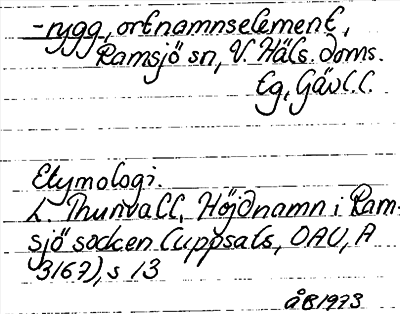 -rygg, ortnamnselement,
Ramsjö sn, V. Häls. doms.
Eg, Gävl.l.
Etymologi.
L. Thunvall, Höjdnamn i Ram-
sjö socken (uppsats, OAU, A
3167), s 13
ÅB1973